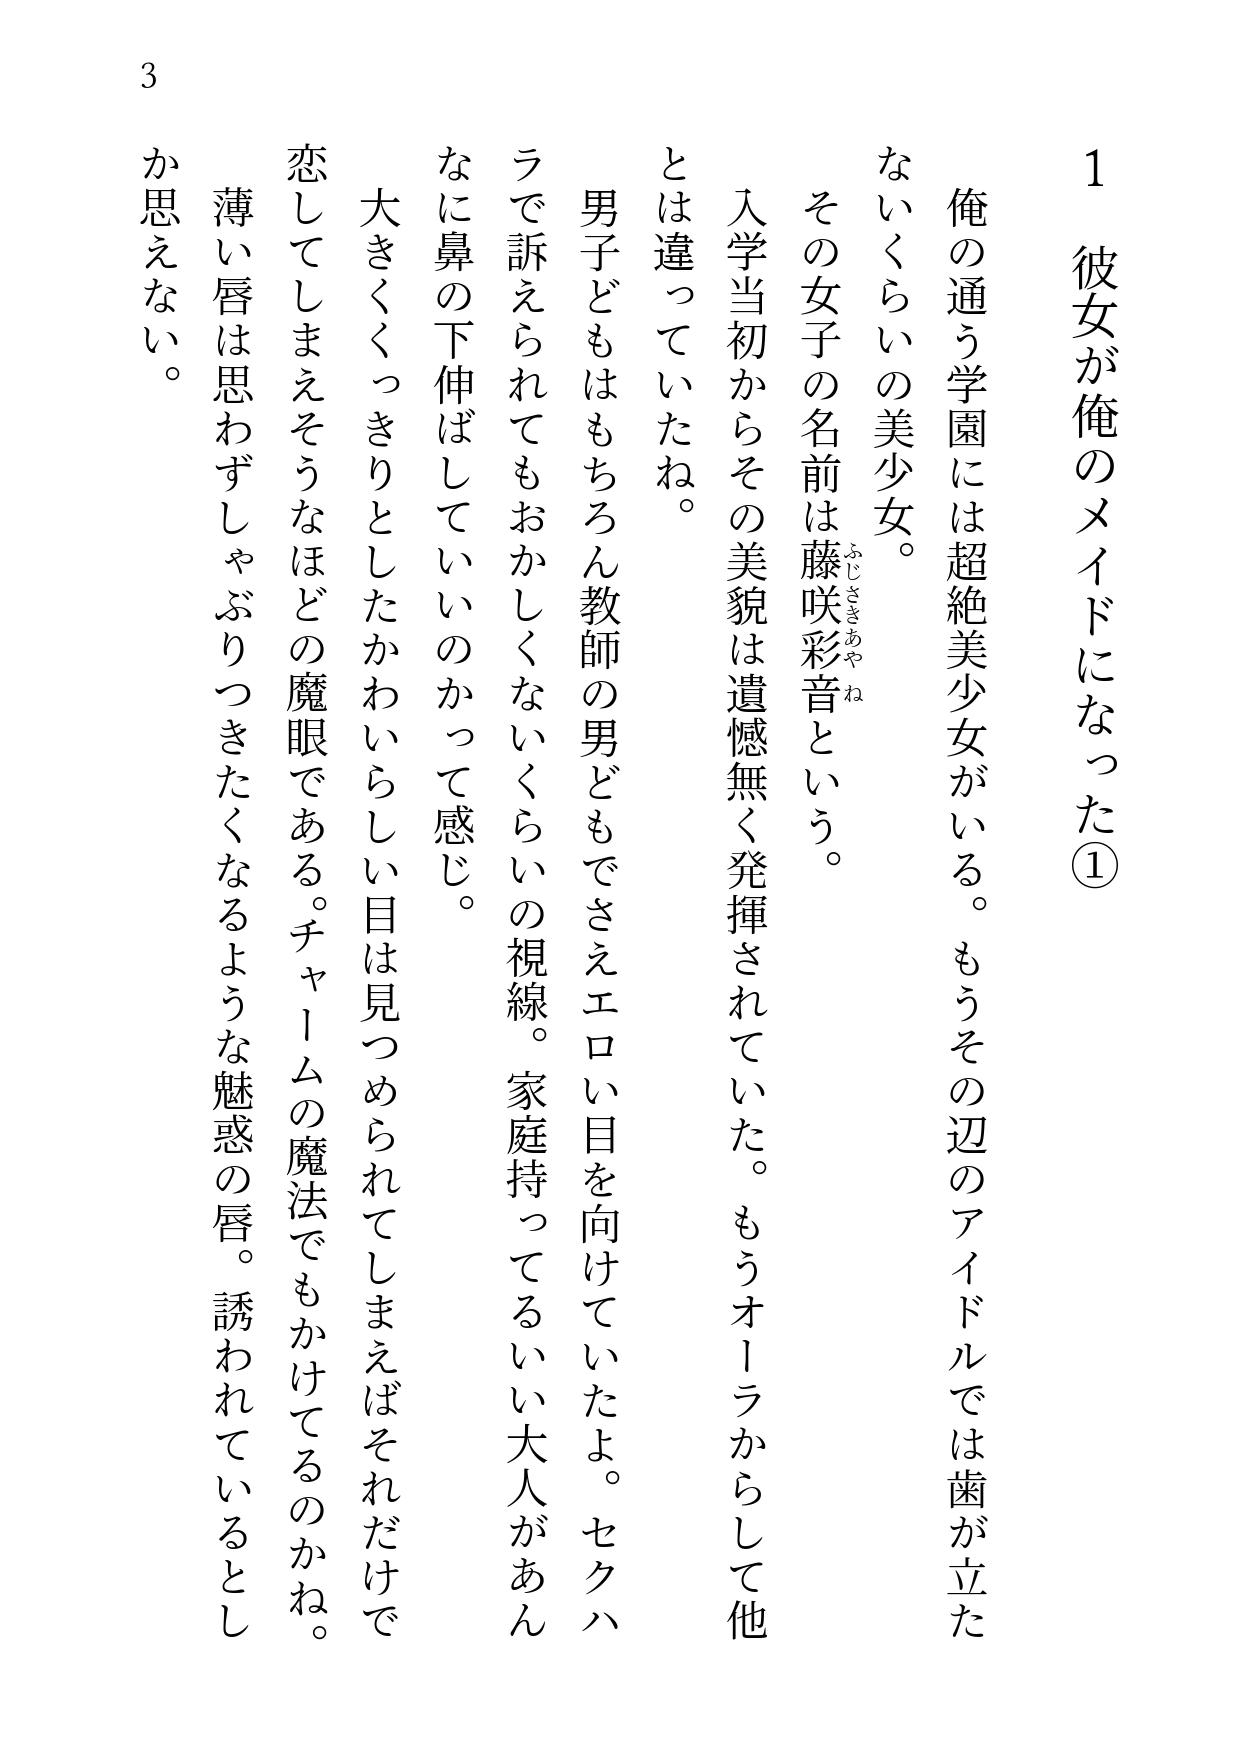 3
1　彼女が俺のメイドになった①
　俺の通う学園には超絶美少女がいる。もうその辺のアイドルでは歯が立た
ないくらいの美少女。
　その女子の名前は藤咲彩音という。
ふじさきあやね
　入学当初からその美貌は遺憾無く発揮されていた。もうオーラからして他
とは違っていたね。
　男子どもはもちろん教師の男どもでさえエロい目を向けていたよ。セクハ
ラで訴えられてもおかしくないくらいの視線。家庭持ってるいい大人があん
なに鼻の下伸ばしていいのかって感じ。
　大きくくっきりとしたかわいらしい目は見つめられてしまえばそれだけで
恋してしまえそうなほどの魔眼である。チャームの魔法でもかけてるのかね。
　薄い唇は思わずしゃぶりつきたくなるような魅惑の唇。誘われているとし
か思えない。